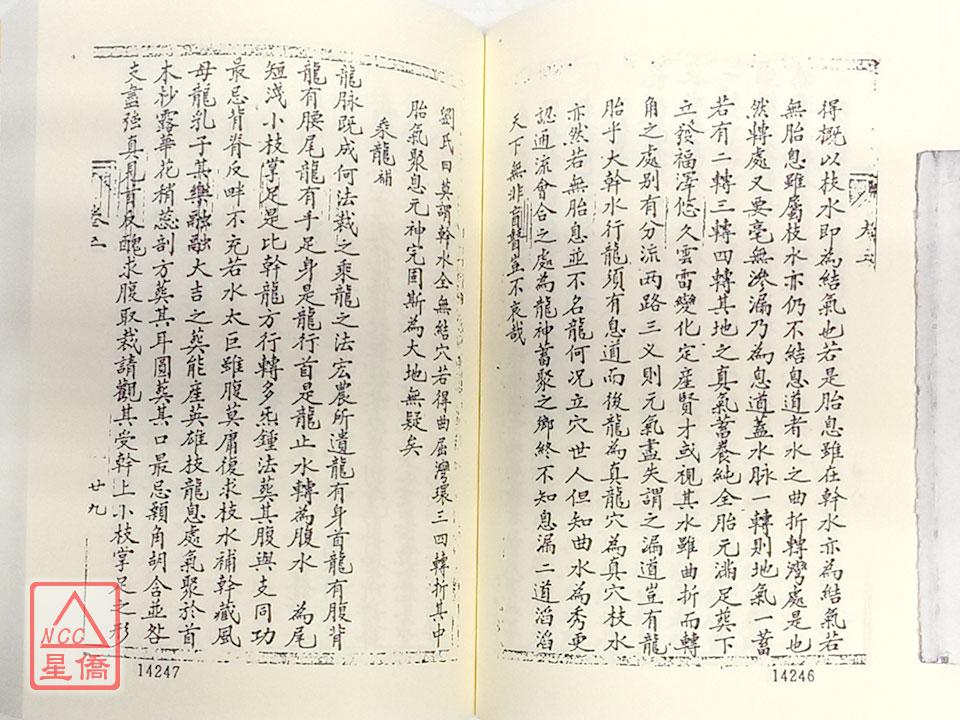 得概以枝水即為結氣也若是胎息雖在幹水亦為結氣若
無胎息雖屬枝水亦仍不結息道者水之曲折轉灣處是也
然轉處又要毫無滲漏乃為息道蓋水脉一轉則地氣一蓄
若有二轉三轉四轉其地之真氣蓄養純全胎元滿足葬下
立發福澤悠久雲雷變化定產賢才或視其水雖曲折而轉
角之處別有分流兩路三义則元氣盡失謂之漏道豈有龍
胎乎大幹水行龍須有息道而後龍為真龍穴為真穴枝水
亦然若無胎息並不名龍何况立穴世人但知曲水為秀更
認通流會合之處為龍神蓄聚之鄉終不知息漏二道滔滔
天下無非盲瞽豈不哀哉
14246
劉氏曰莫謂幹水全無結穴若得曲屈灣環三四轉折其中
胎氣聚息元神完固斯為大地無疑矣
乘龍補
龍脉既成何法裁之乘龍之法宏農所遺龍有身首龍有腹背
龍有腰尾龍有手足身是龍行首是龍止水轉為腹水 為尾
短淺小枝掌足是比幹龍方行轉多炁鍾法葬其腹與支同功
最忌背脊反畔不充若水太巨雖腹莫庸復求枝水補幹藏風
母龍乳子其樂融融大吉之葬能產英雄枝龍息處氣聚於首
木杪露華花稍蕊剖方葬其耳圓葬其口最忌顙角胡含並咎
支盡强真見首反醜求腹取裁請觀其受幹上小枝掌足之形
卷三
廿九
14247
NCC
星僑